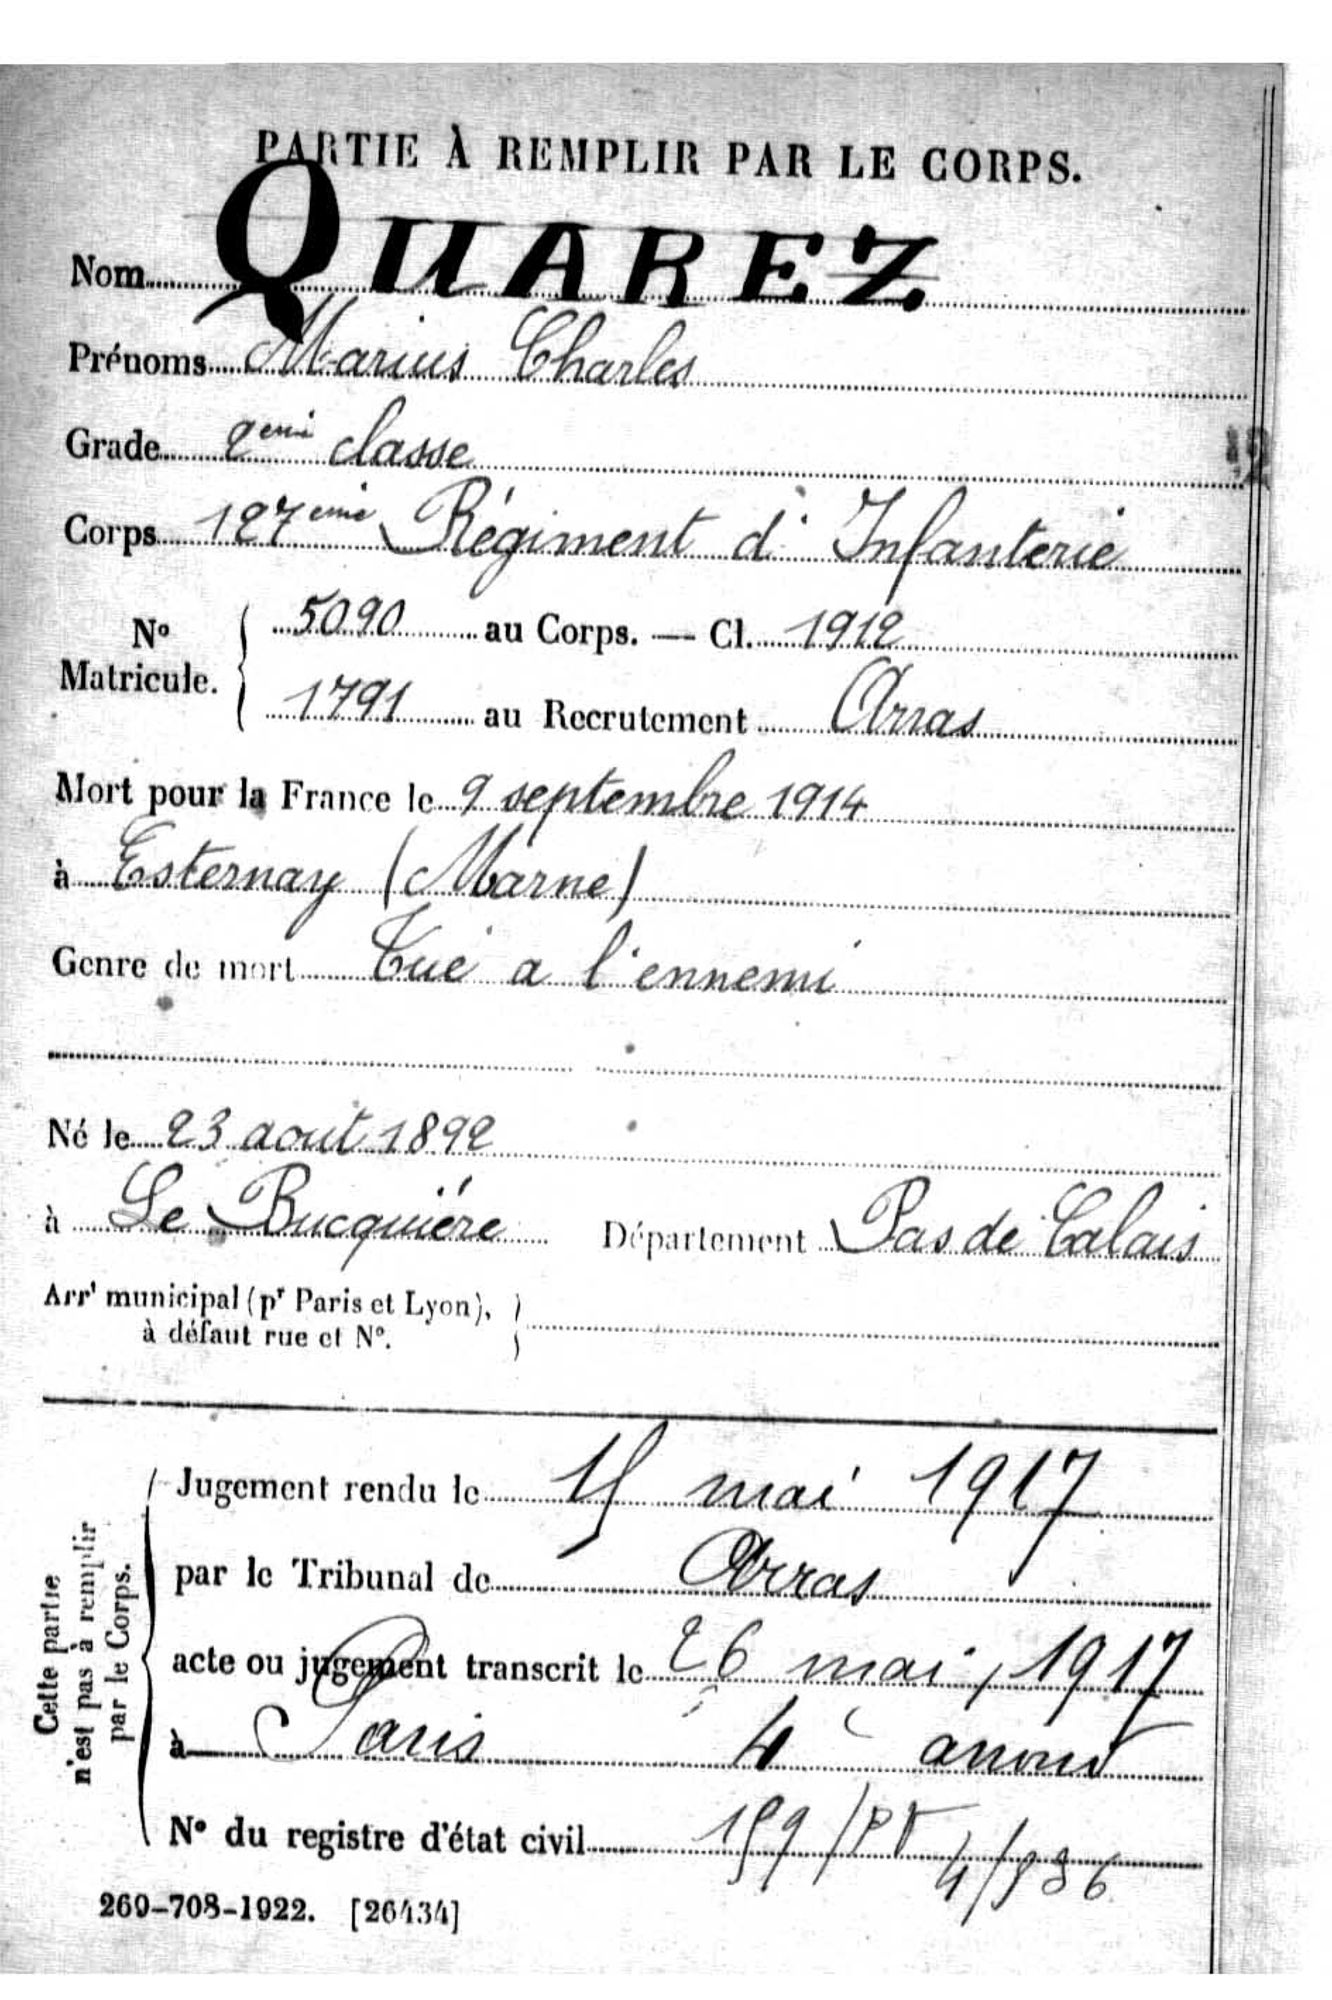 PARTIE À REMPLIR PAR LE CORPS.
Nom QUAREZ
Prénoms Marius Charles
Grade 2eme classe
Corps 127eme Régiment d'Infanterie
No Matricule. { 5090 au Corps. — Cl. 1912
1791 au Recrutement Arras
Mort pour la France le 9 septembre 1914
à Esternay (Marne)
Genre de mort Tué a l'ennemi
Né le 23 aout 1892
à Le Bucquiére Département Pas de Calais
Arrt municipal (pr Paris et Lyon), à défaut rue et No. }
Cette partie n'est pas à remplir par le Corps.
Jugement rendu le 15 mai 1917
par le Tribunal de Arras
acte ou jugement transcrit le 26 mai, 1917
à Paris 4 arront
No du registre d'état civil 159/
260-708-1922. [26434]